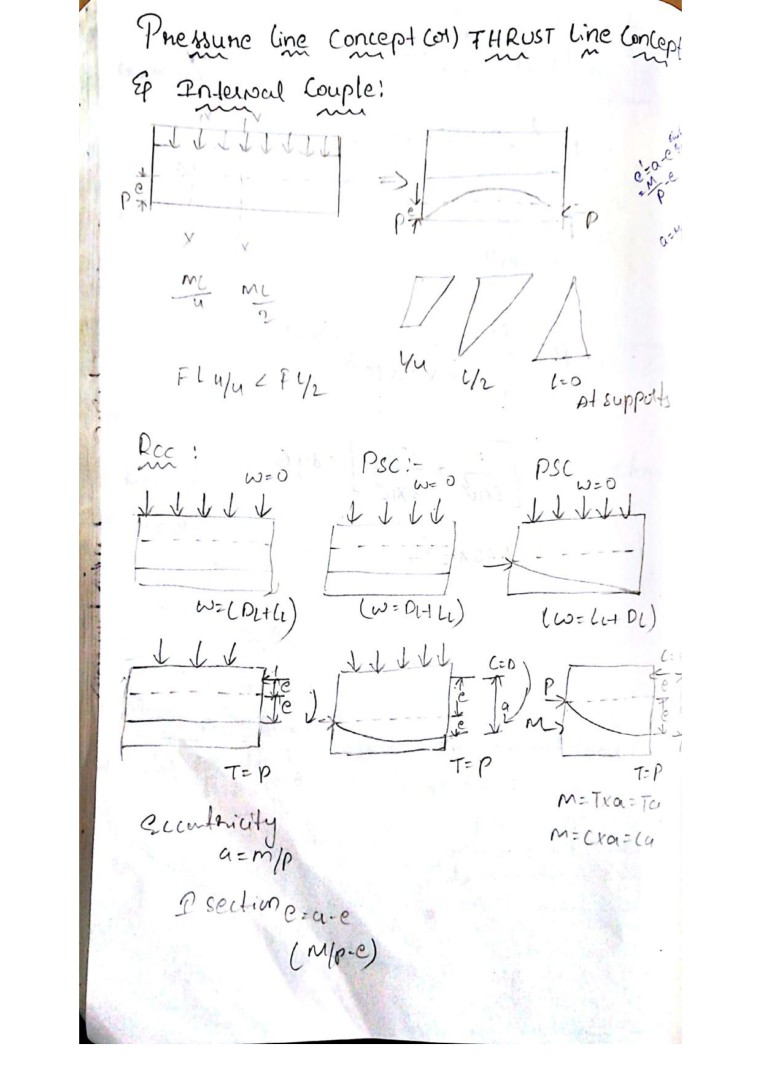 Pressure line Concept (or) THRUST Line Concept
& Internal Couple:
P e
P e
P
e' = a-e
= M/P - e
ML/4 ML/2
L/4
L/2
L=0
At supports
Rcc :
w=0
PSC:-
w=0
PSC
w=0
w=(DL+LL)
(w=DL+LL)
(w=LL+DL)
e'
e
C=D
e
e
a
P
M
e
e
T=P
T=P
T=P
M=Txa=Ta
M=Cxa=Ca
Eccentricity
a=m/p
I section e=a-e
(M/p-e)